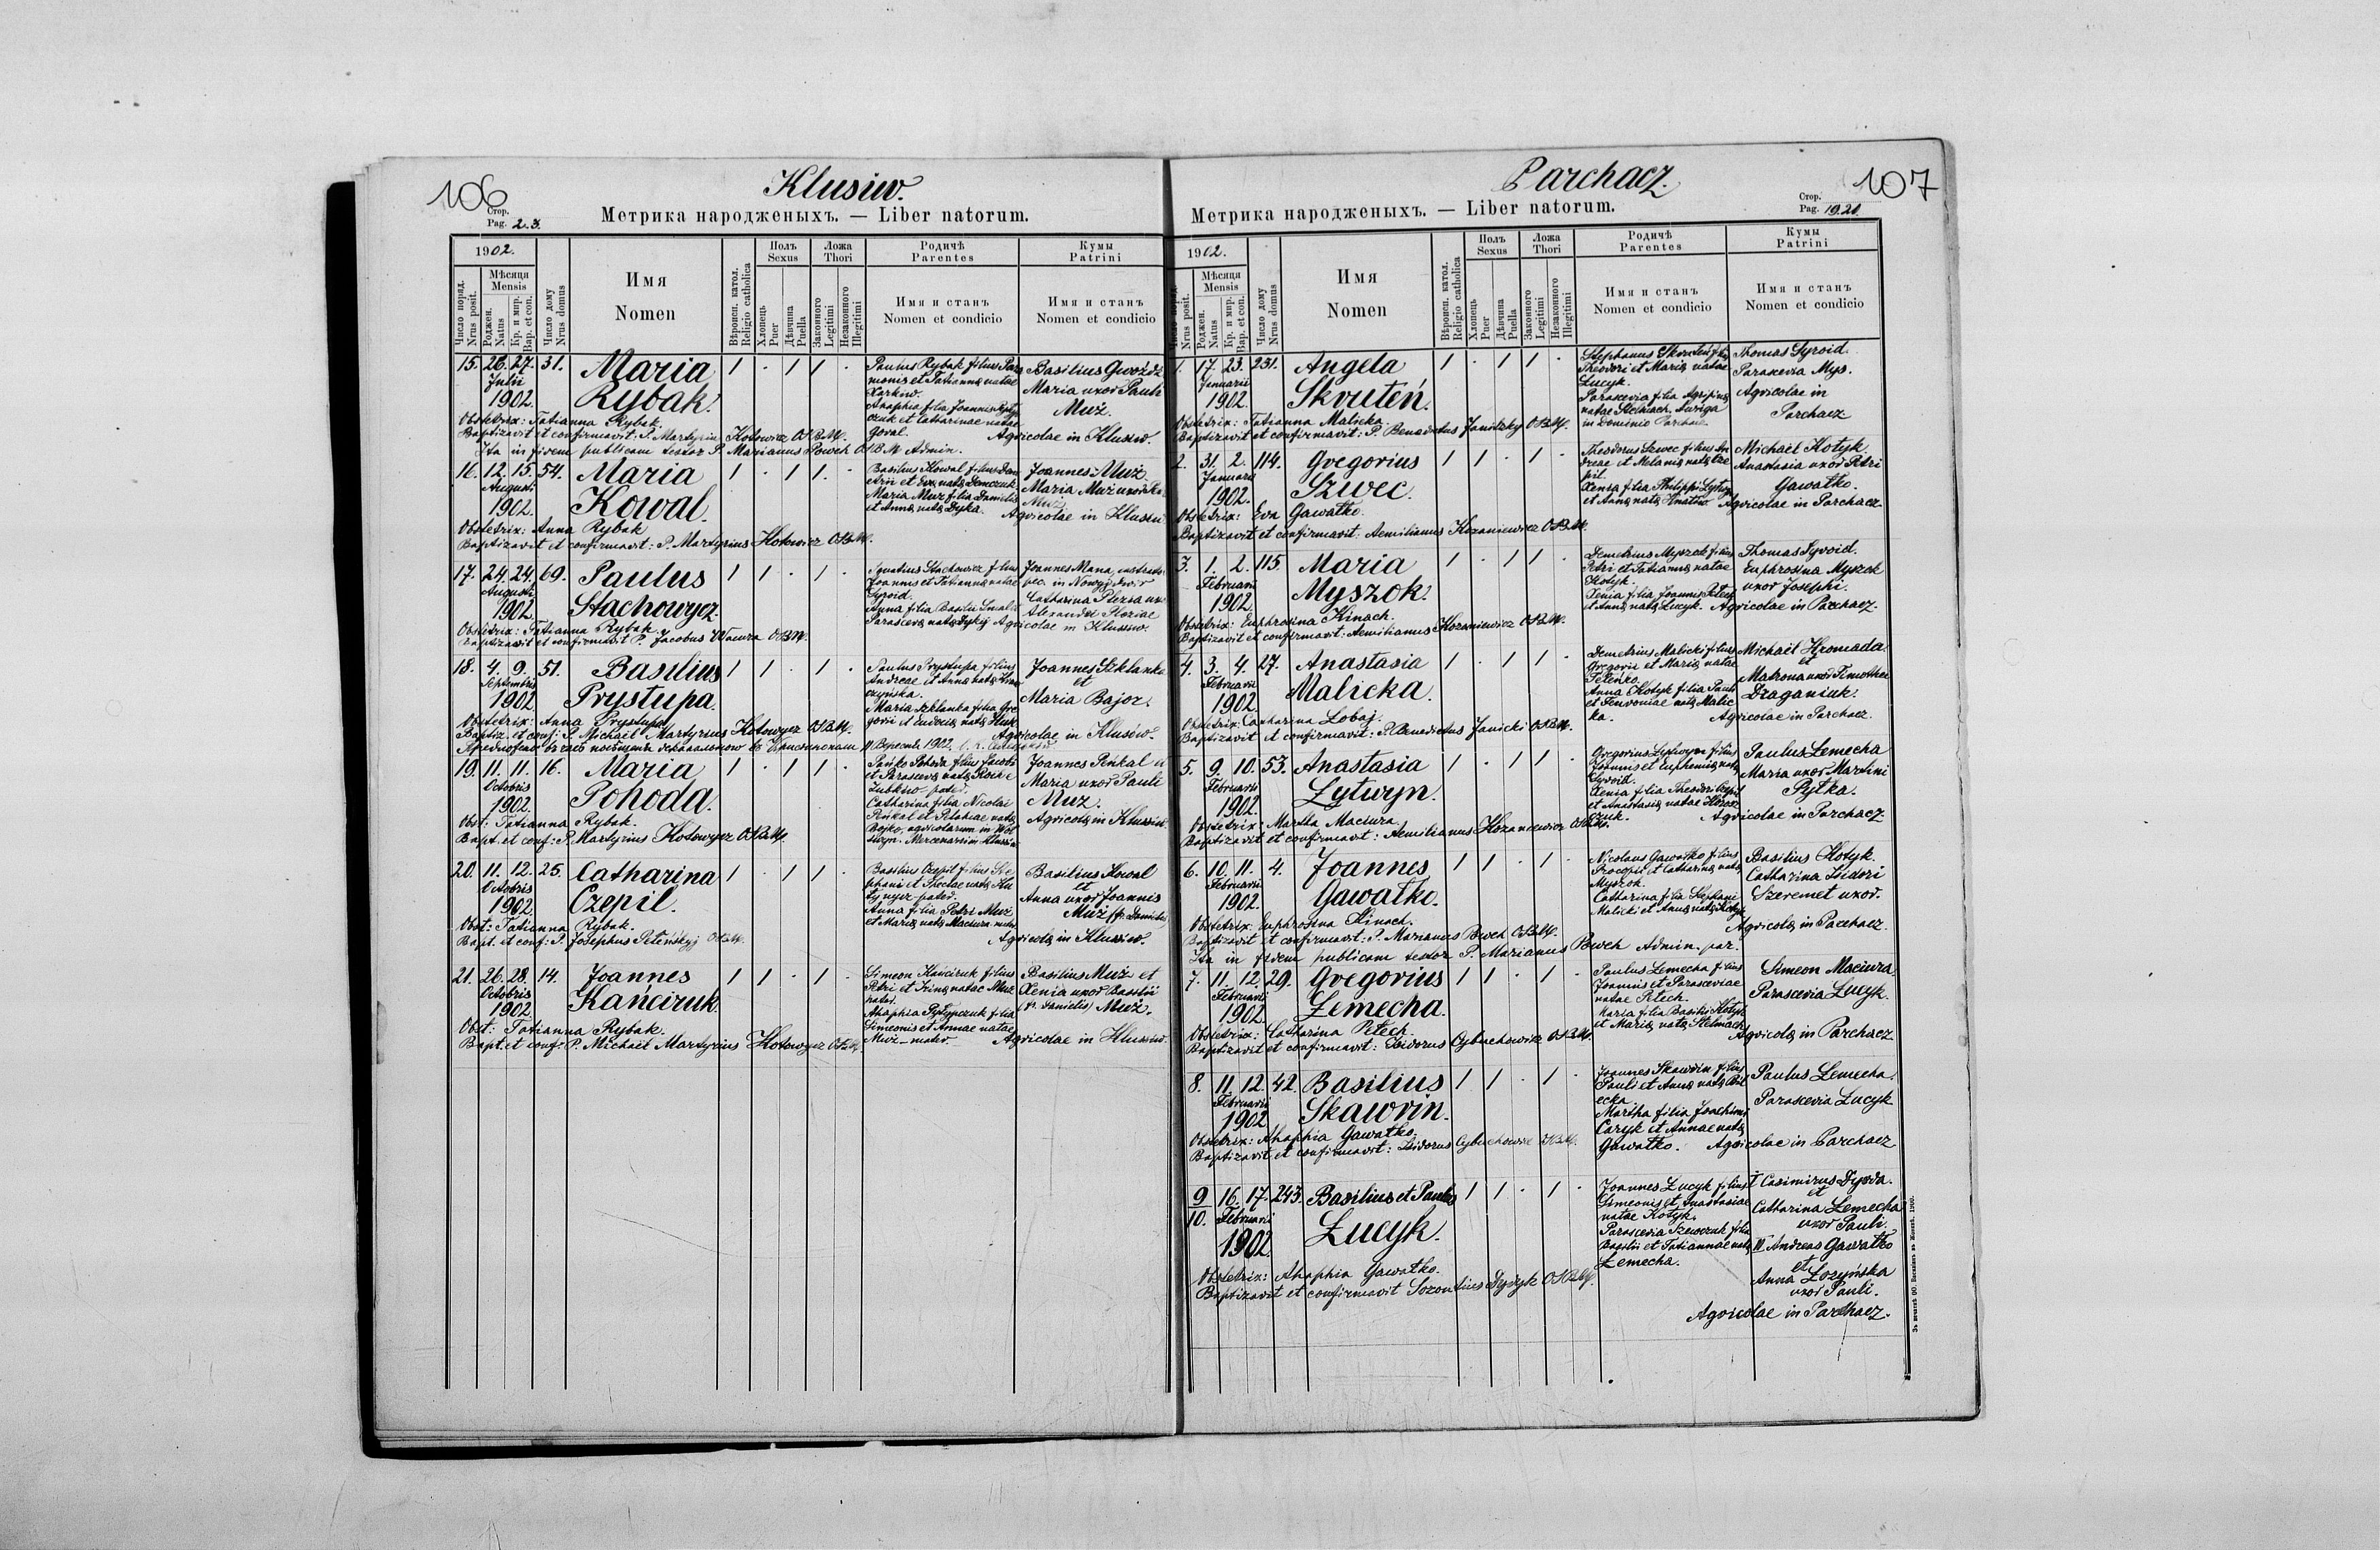 106
Стор.
Pag. 2.3.
Klusiw.
Метрика народженыхъ. — Liber natorum.
1902.
Число поряд.
Nrus posit.
Мѣсяця
Mensis
Роджен.
Natus
Кр. и мир.
Bap. et con.
Число дому
Nrus domus
Имя
Nomen
Вѣроисп. катол.
Religio catholica
Полъ
Sexus
Хлопець
Puer
Дѣвчина
Puella
Ложа
Thori
Законного
Legitimi
Незаконного
Illegitimi
Родичѣ
Parentes
Имя и станъ
Nomen et condicio
Кумы
Patrini
Имя и станъ
Nomen et condicio
15. 26. 27. 31. Maria 1 . 1 1 .
Julii
1902. Rybak.
Paulus Rybak filius
et Tatiannae natae
Anaphia filia Joannis
et Catharinae natae
Goral.
Basilius Gwoźdź
Maria uxor Pauli
Muź.
Agricolae in Klusiw.
Obstetrix: Tatianna Rybak.
Baptizavit et confirmavit: P. Martyrius Hotowicz OSBM.
Ita in fidem publicam testor P. Marianus Poweh OSBM Admin.
16. 12. 15. 54. Maria 1 . 1 1 .
Augusti
1902. Kowal.
Basilius Kowal filius
et natae
Maria Muz filia Danielis
et Annae natae Dyka.
Joannes Muż
Maria Muż
Muż
Agricolae in Klusiw
Obstetrix: Anna Rybak
Baptizavit et confirmavit: P. Martyrius Hotowicz OSBM.
17. 24. 24. 69. Paulus 1 1 . 1 .
Augusti
1902. Stachowycz.
Ignatius Stachowicz filius
Joannis et Tatiannae natae
Syroid.
Anna filia Basilii
Parasceviae natae
Joannes Mana,
in Nowyj Dwir
Catharina
Alexandri
Agricolae in Klusiw.
Obstetrix: Tatianna Rybak.
Baptizavit et confirmavit P. Jacobus Wacura OSBM.
18. 4. 9. 51. Basilius 1 1 . 1 .
Septembris
1902. Prystupa.
Paulus Prystupa filius
Andreae et Annae natae
Maria Szklanka filia Gre
gorii et Eudociae natae
Joannes Szklanka
et
Maria Bajor.
Agricolae in Klusiw.
Obstetrix: Anna Prystupa
Baptiz. et conf: P. Michaël Martyrius Hotowycz OSBM.
1902.
19. 11. 11. 16. Maria 1 . 1 1 .
Octobris
1902. Pohoda.
Pohoda filius Jacobi
et Parasceviae natae
Catharina filia Nicolai
Pińkal et Pelahiae natae
Bojko, agricolarum in
Joannes Pińkal et
Maria uxor Pauli
Muż.
Agricolae in Klusiw.
Obst: Tatianna Rybak.
Bapt. et conf: P. Martyrius Hotowycz OSBM.
20. 11. 12. 25. Catharina 1 . 1 1 .
Octobris
1902. Czepil.
Basilius Czepil filius Ste
phani et
Anna filia Petri Muż
et Mariae natae Maciura
Basilius Kowal
et
Anna uxor Joannis
Muż
Agricolae in Klusiw.
Obst: Tatianna Rybak.
Bapt. et conf: P. Josephus OSBM.
21. 26. 28. 14. Joannes 1 1 . 1 .
Octobris
1902. Kańczuk.
Simeon Kańczuk filius
Petri et Irinae natae Muż
Ahaphia filia
Simeonis et Annae natae
Muż-mater.
Basilius Muż et
Xenia uxor Basilii
(fr. Danielis) Muż.
Agricolae in Klusiw.
Obst: Tatianna Rybak.
Bapt. et conf: P. Michaël Martyrius Hotowycz OSBM.
Стор.
Pag. 19.20.
107
Parchacz.
Метрика народженыхъ. — Liber natorum.
1902.
Число поряд.
Nrus posit.
Мѣсяця
Mensis
Роджен.
Natus
Кр. и мир.
Bap. et con.
Число дому
Nrus domus
Имя
Nomen
Вѣроисп. катол.
Religio catholica
Полъ
Sexus
Хлопець
Puer
Дѣвчина
Puella
Ложа
Thori
Законного
Legitimi
Незаконного
Illegitimi
Родичѣ
Parentes
Имя и станъ
Nomen et condicio
Кумы
Patrini
Имя и станъ
Nomen et condicio
1. 17. 23. 231. Angela 1 . 1 1 .
Januarii
1902. Skruteń.
Stephanus Skruteń filius
Theodori et Mariae natae
Łucyk.
Parascevia filia
natae Stelmach.
in Dominio
Thomas Syroid.
Parascevia Mys.
Agricolae in
Parchacz
Obstetrix: Tatianna Malicka.
Baptizavit et confirmavit: P. Benedictus Janitzky OSBM.
2. 31. 2. 114. Gregorius 1 1 . 1 .
Januarii
1902. Szwec.
Theodorus Szwec filius An
dreae et Melaniae natae Cze
pil.
Xenia filia Philippi Lytwyn
et Annae natae Hnatiw.
Michaël Kotyk
Anastasia uxor Petri
Gawałko.
Agricolae in Parchacz
Obstetrix: Eva Gawałko.
Baptizavit et confirmavit: Aemilianus Kozaniewicz OSBM.
3. 1. 2. 115. Maria 1 . 1 1 .
Februarii
1902. Myszok.
Demetrius Myszok filius
Petri et Tatiannae natae
Kotyk.
Xenia filia Joannis Petech
et Annae natae Łucyk.
Thomas Syroid.
Euphrosina Myszok
uxor Josephi.
Agricolae in Parchacz.
Obstetrix: Euphrosina Kinach.
Baptizavit et confirmavit: Aemilianus Kozaniewicz OSBM.
4. 3. 4. 27. Anastasia 1 . 1 1 .
Februarii
1902. Malicka.
Demetrius Malicki filius
Gregorii et Mariae natae
Teleńko.
Anna Kotyk filia Pauli
et Fevroniae natae Malic
ka.
Michaël Hromada
et
Matrona uxor Timothei
Draganiuk.
Agricolae in Parchacz.
Obstetrix: Catharina Łobaj.
Baptizavit et confirmavit: P. Benedictus Janicki OSBM.
5. 9. 10. 53. Anastasia 1 . 1 1 .
Februarii
1902. Lytwyn.
Gregorius Lytwyn filius
Joannis et Euphemiae natae
Syroid.
Xenia filia Theodori Czepil
et Anastasiae natae
czuk.
Paulus Łemecha
Maria uxor Martini
Pytka.
Agricolae in Parchacz.
Obstetrix: Martha Maciura.
Baptizavit et confirmavit: Aemilianus Kozaniewicz OSBM.
6. 10. 11. 4. Joannes 1 1 . 1 .
Februarii
1902. Gawałko.
Nicolaus Gawałko filius
Procopii et Catharinae natae
Myszok.
Catharina filia Stephani
Malicki et Annae natae Kotyk
Basilius Kotyk.
Catharina Isidori
Szeremet uxor.
Agricolae in Parchacz.
Obstetrix: Euphrosina Kinach.
Baptizavit et confirmavit: P. Marianus Poweh OSBM.
Ita in fidem publicam testor P. Marianus Poweh Admin. par.
7. 11. 12. 29. Gregorius 1 1 . 1 .
Februarii
1902. Łemecha.
Paulus Łemecha filius
Joannis et Parasceviae
natae Petech.
Maria filia Basilii Kotyk
et Mariae natae Stelmach
Simeon Maciura
Parascevia Łucyk.
Agricolae in Parchacz.
Obstetrix: Catharina Petech.
Baptizavit et confirmavit: Isidorus Cybuchowicz OSBM.
8. 11. 12. 42. Basilius 1 1 . 1 .
Februarii
1902 Skawrin.
Joannes Skawrin filius
Pauli et Annae natae Bil
ecka.
Martha filia Joachimi
Caryk et Annae natae
Gawałko.
Paulus Łemecha.
Parascevia Łucyk
Agricolae in Parchacz
Obstetrix: Ahaphia Gawałko.
Baptizavit et confirmavit: Isidorus Cybuchowicz OSBM.
9 16. 17. 243. Basilius et Paulus 1 1 . 1 .
10. Februarii
1902 Łucyk.
Joannes Łucyk filius
Simeonis et Anastasiae
natae Kotyk.
Parascevia Szewczuk filia
Basilii et Tatiannae natae
Łemecha.
I Casimirus Dyrda.
et
Catharina Łemecha
uxor Pauli.
II Andreas Gawałko
et
Anna Łozyńska
uxor Pauli.
Agricolae in Parchacz.
Obstetrix: Ahaphia Gawałko.
Baptizavit et confirmavit Sozontius Dydyk OSBM.